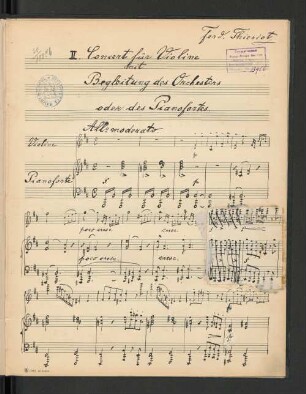 Ferd. Thieriot
II. Concert für Violine
mit
Begleitung des Orchesters
oder des Pianofortes
All: moderato
Violine
Pianoforte
poco cresc.
cresc.
poco cresc.
cresc.